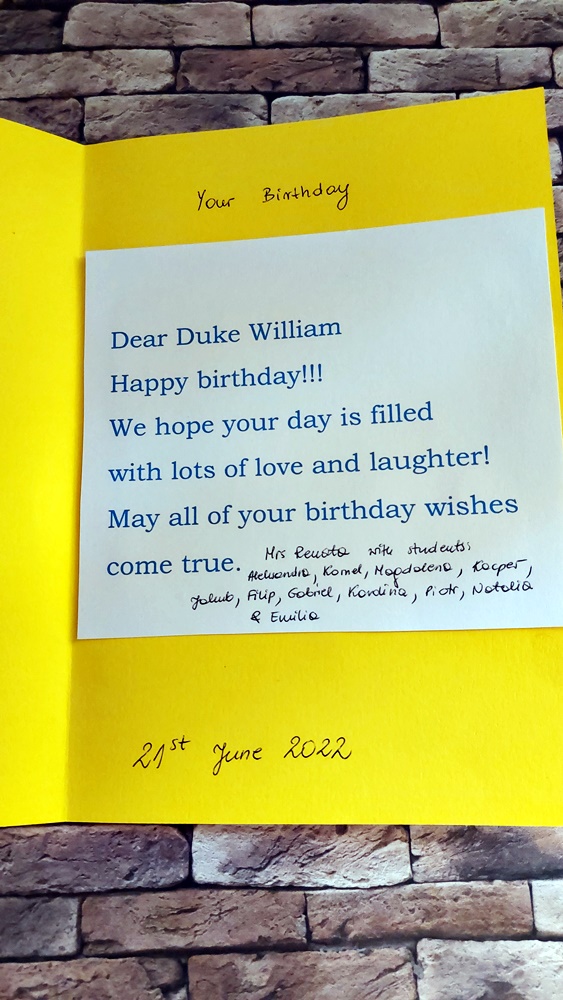 Your Birthday
Dear Duke William
Happy birthday!!!
We hope your day is filled
with lots of love and laughter!
May all of your birthday wishes
come true. Mrs Renata with students:
Aleksandra, Kornel, Magdalena, Kacper,
Jakub, Filip, Gabriel, Karolina, Piotr, Natalia
& Emilia
21st June 2022